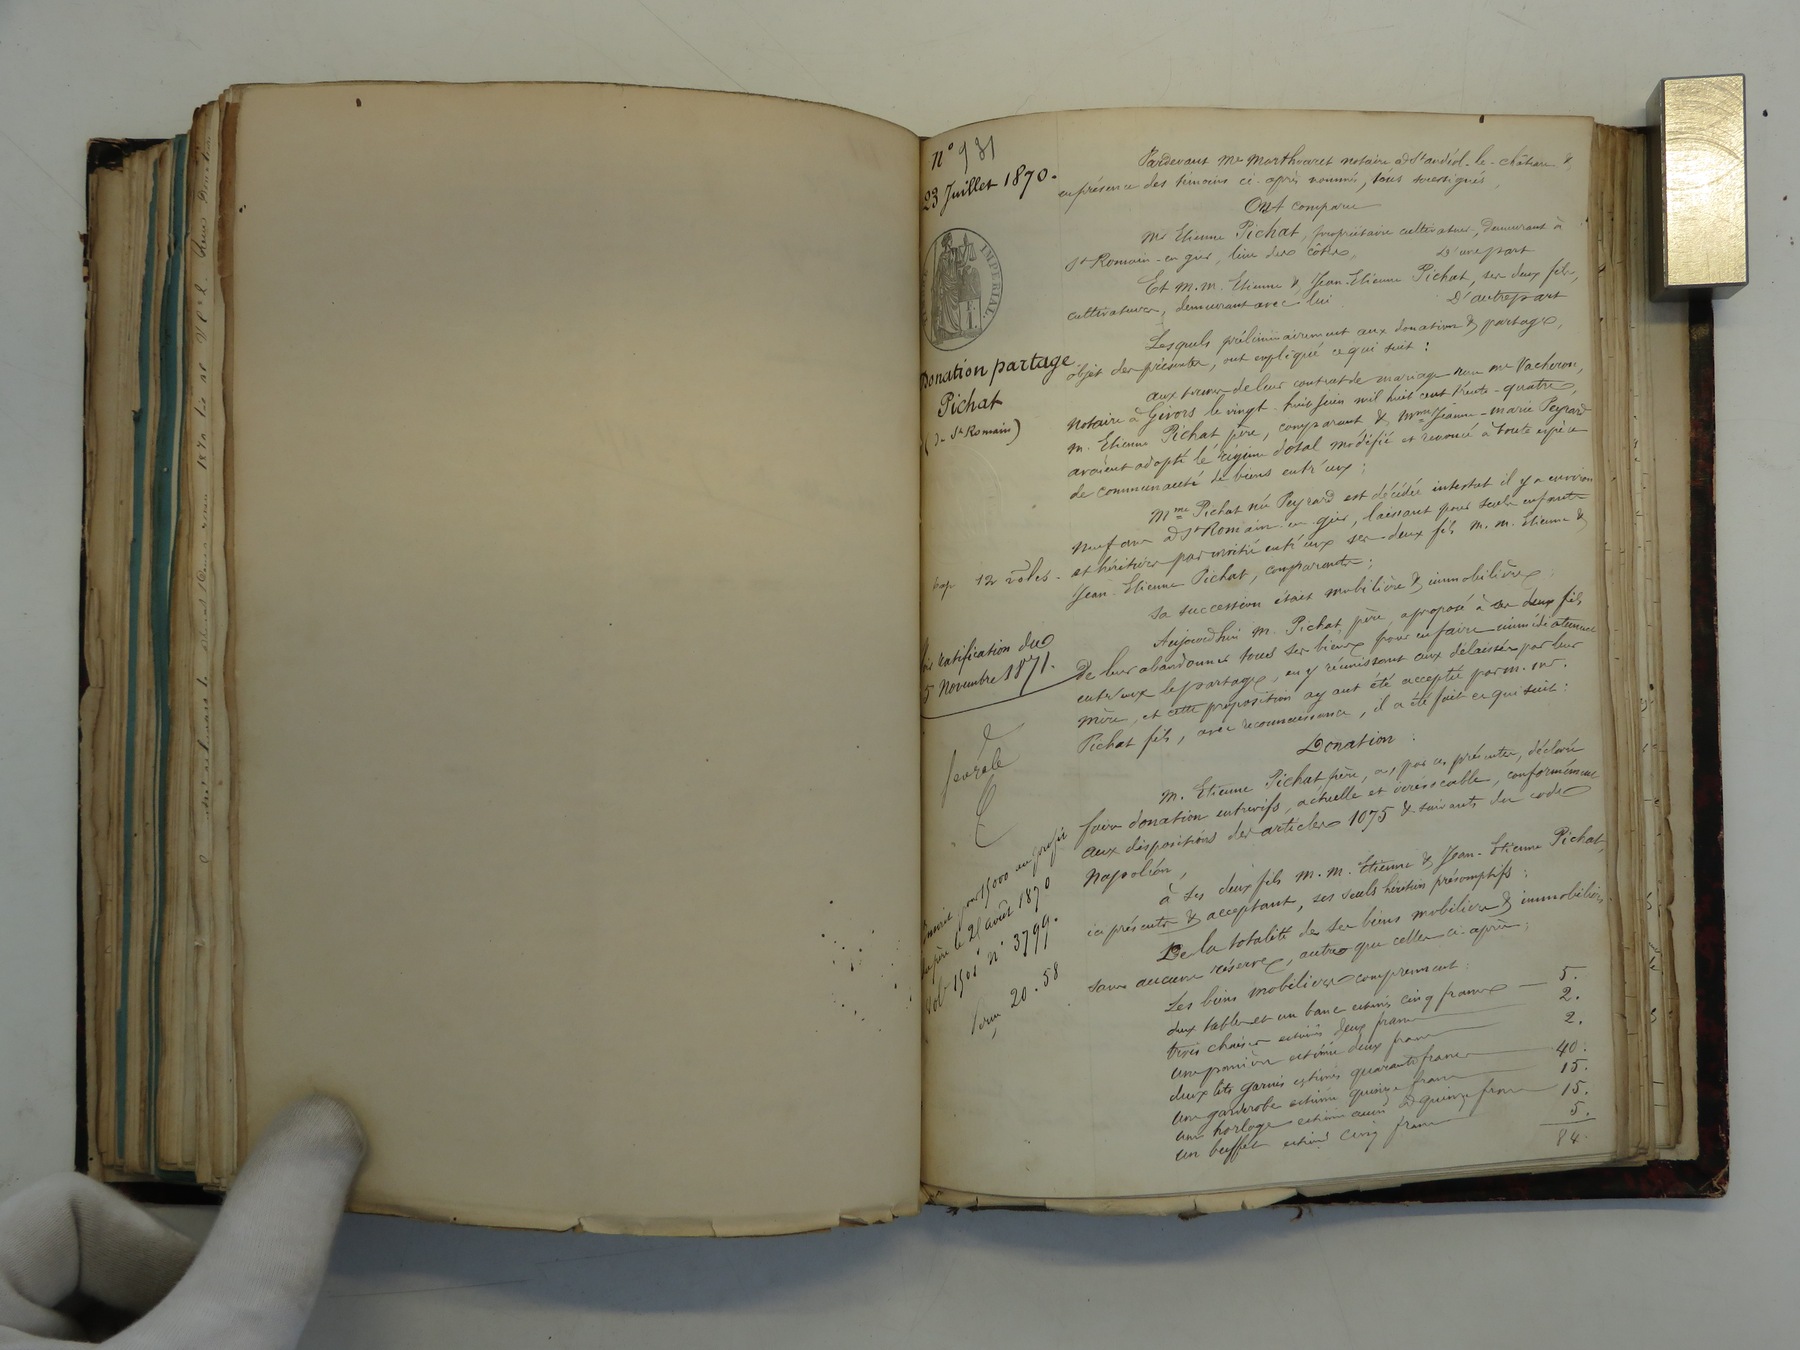 n° 931
23 Juillet 1870.
IMPERIAL.
Donation partage
Pichat
(de St Romain)
12 rôles.
ratification du
5 Novembre 1871.
15000 au profit
du père le 21 août 1870
Vol. 1501 n° 3799.
20.58
Pardevant Me Marthouret notaire à St andéol-le-château &
en présence des témoins ci-après nommés, tous soussignés,
Ont comparu
Mr Etienne Pichat, propriétaire cultivateur, demeurant à
St Romain-en-gier, lieu des côtes, D'une part
Et M.M. Etienne & Jean-Etienne Pichat, ses deux fils,
cultivateurs, demeurant avec lui D'autre part
Lesquels préliminairement aux donation & partage,
objet des présentes, ont expliqué ce qui suit :
aux termes de leur contrat de mariage reçu me Vacheron,
notaire à Givors le vingt-huit juin mil huit cent trente-quatre,
M. Etienne Pichat père, comparant & Mme Jeanne-Marie Peyrard
avaient adopté le régime dotal modifié et renoncé à toute espèce
de communauté de biens entr'eux ;
Mme Pichat née Peyrard est décédée intestat il y a environ
neuf ans à St Romain-en-gier, laissant pour seuls enfants
et héritiers par moitié entr'eux ses deux fils M.M. Etienne &
Jean-Etienne Pichat, comparants ;
Sa succession était mobilière & immobilière ;
Aujourd'hui M. Pichat père, a proposé à ses deux fils
De leur abandonner tous ses biens pour en faire immédiatement
entr'eux le partage, en y réunissant ceux délaissés par leur
mère, et cette proposition ayant été acceptée par M.M.
Pichat fils, avec reconnaissance, il a été fait ce qui suit :
Donation :
M. Etienne Pichat père, a, par ces présentes, déclaré
faire donation entrevifs, actuelle et irrévocable, conformément
aux dispositions des articles 1075 & suivants du code
Napoléon,
à ses deux fils M.M. Etienne & Jean-Etienne Pichat,
ici présents & acceptant, ses seuls héritiers présomptifs :
De la totalité de ses biens mobiliers & immobiliers
sans aucune réserve, autre que celles ci-après ;
Les biens mobiliers comprennent :
deux tables et un banc estimés cinq francs 5.
trois chaises estimées deux francs 2.
une estimée deux francs 2.
deux lits garnis estimés quarante francs 40.
une garderobe estimée quinze francs 15.
une horloge estimée aussi à quinze francs 15.
un buffet estimé cinq francs 5.
84.